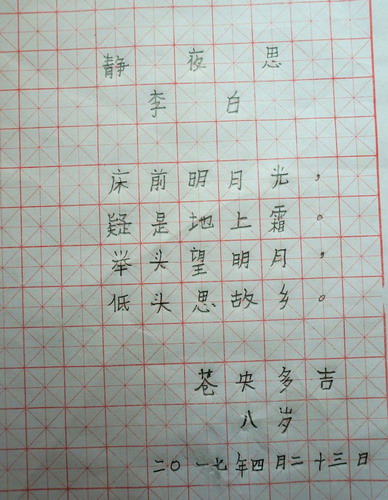 静夜思
李白
床前明月光，
疑是地上霜。
举头望明月，
低头思故乡。
苍央多吉
八岁
二〇一七年四月二十三日